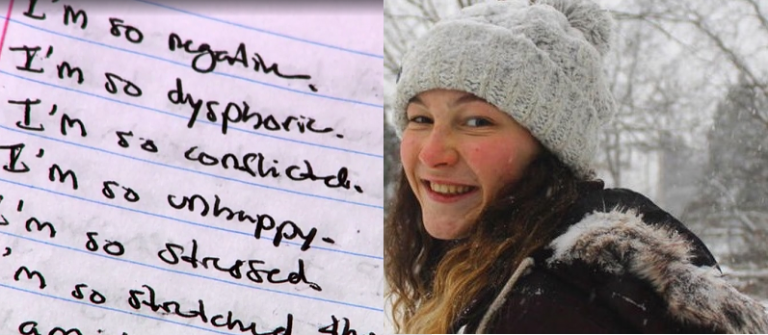 I'm so negative.
I'm so dysphoric.
I'm so conflicted.
I'm so unhappy.
I'm so stressed.
I'm so stretched
am